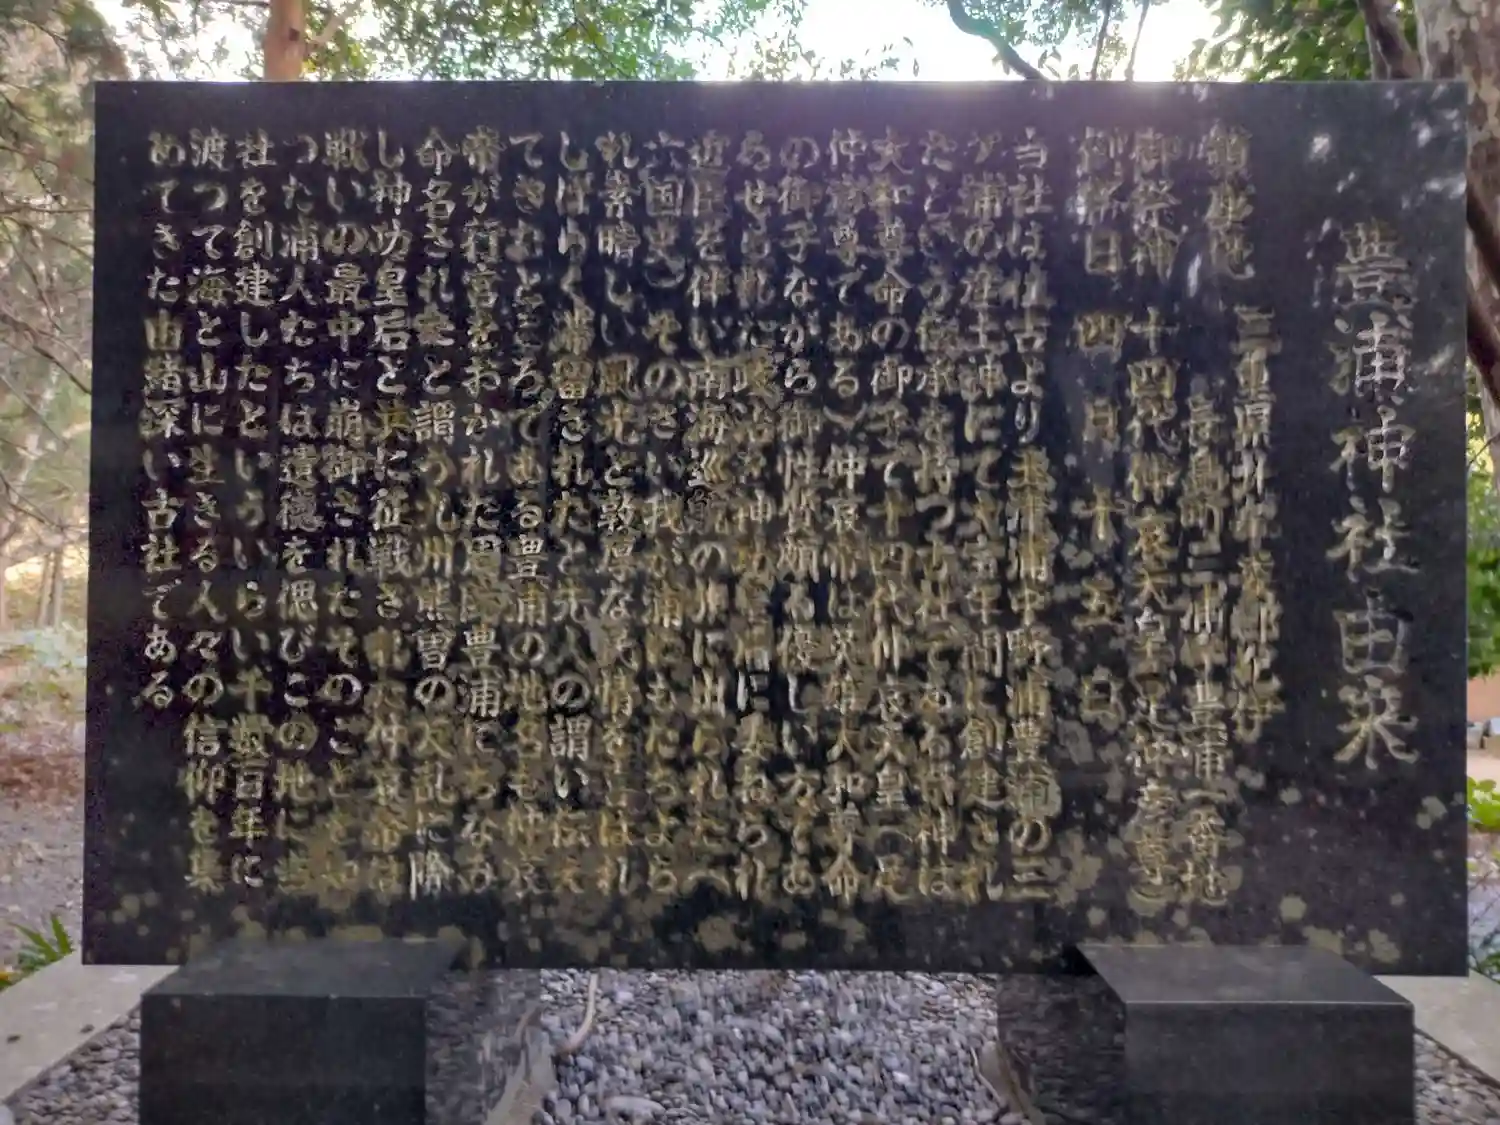 豊浦神社由来
鎮座地 三重県北牟婁郡紀伊
長島町三浦字豊浦一番地
御祭神 十四代仲哀天皇(足仲彦尊)
例祭日 四月十五日
当社は往古より 浦豊浦の三
ヶ浦の産土神にて 年間に創建され
たという伝承を持つ古社である御祭神は
大和尊命の御子で十四代仲哀天皇(足
仲彦尊である)仲哀帝は英雄大和尊命
の御子ながら御性質頗る優しい方であ
らせられ に
近臣を伴い南海巡航の旅に出られた(
六国史)そのさい我が浦にもたちよら
れ素晴しい風光と敦厚な民情を はれ
しばらく滞留されたと先人の謂い伝え
てきたところである豊浦の地名も仲哀
帝が行宮をおかれた 豊浦にちなみ
命名されたと謂う九州熊曽の大乱に際
し神功皇后と共に征戦され 仲哀帝は
戦いの最中に崩御されたそのことを知
つた浦人たちは遺徳を偲びこの地に当
社を創建したといういらい千数百年に
渡つて海と山に生きる人々の信仰を集
めてきた由緒深い古社である